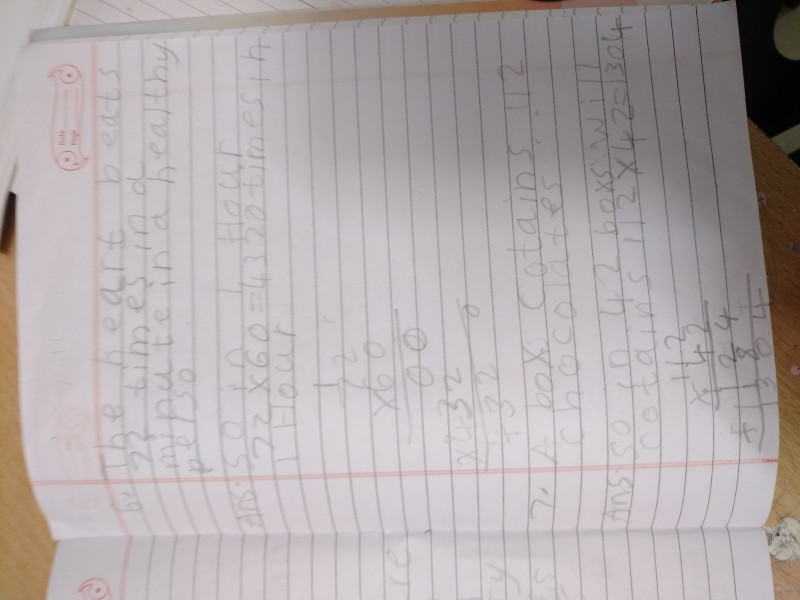 Date
Page
6. The heart beats
72 times in a
minute in a healthy
perso
Ans. so in 1 Hour
72 x 60 = 4320 times in
1 Hour
72
x60
00
x432
4320
7. A box cotains 112
chocolates.
Ans. so in 42 boxs will
cotains 112 x 42 = 1304
112
x 42
1 2 4
+ 1 1 8
1 3 0 4